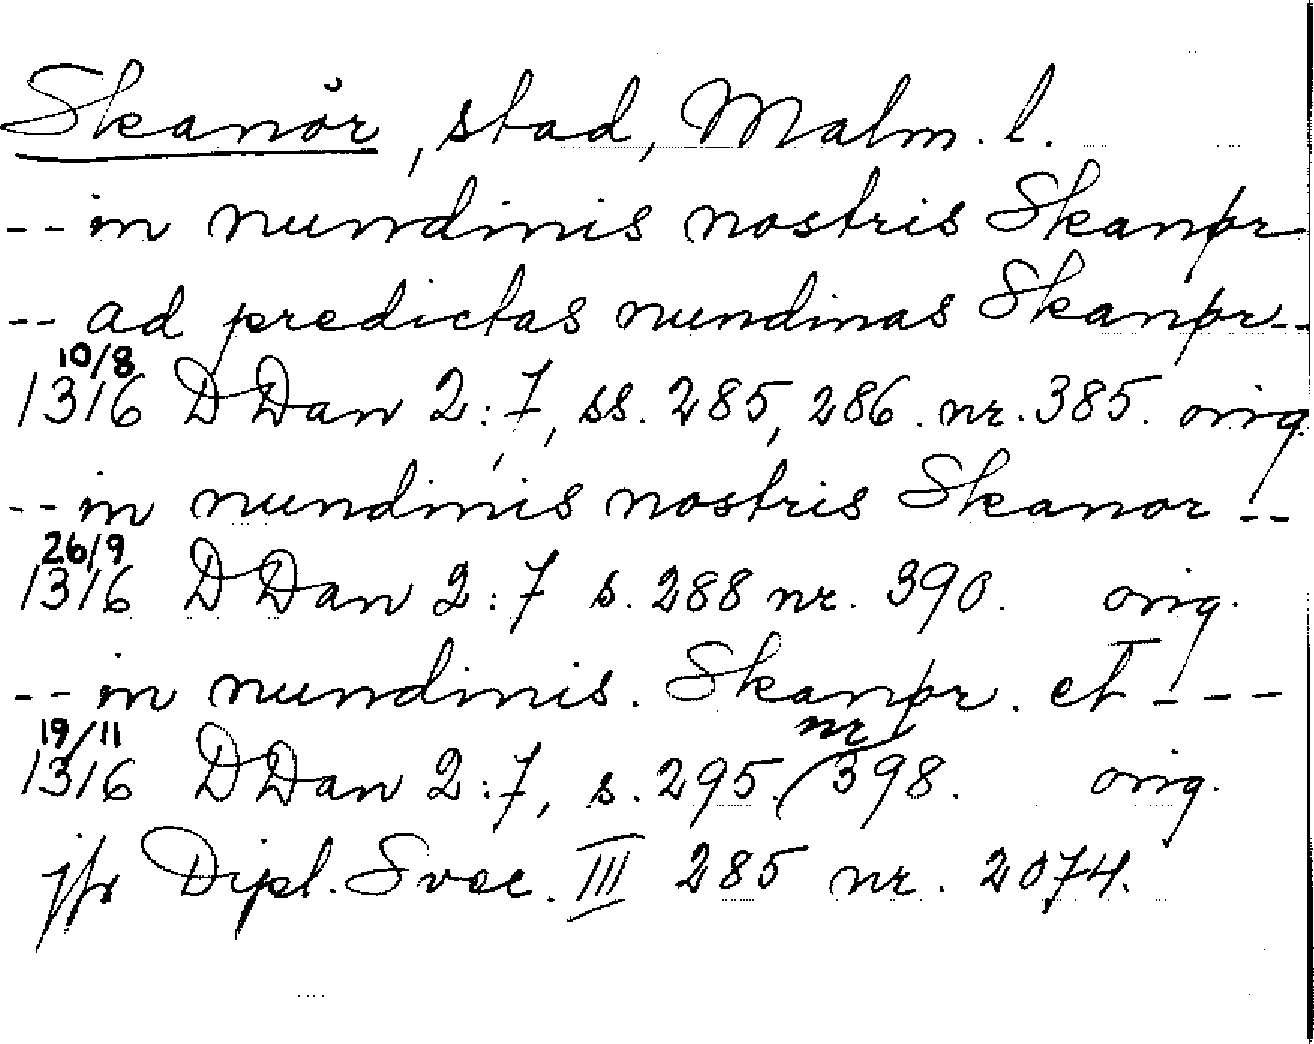 Skanör, stad, Malm. l.
-- in nundinis nostris Skanør
-- ad predictas nundinas Skanør --
10/8
1316 DDan 2:7, ss. 285, 286. nr. 385. orig.
-- in nundinis nostris Skanor --
26/9
1316 DDan 2:7 s. 288 nr. 390. orig.
-- in nundinis. Skanør. et ---
19/11
1316 DDan 2:7, s. 295. nr 398. orig.
jfr Dipl. Svec. III 285 nr. 2074.